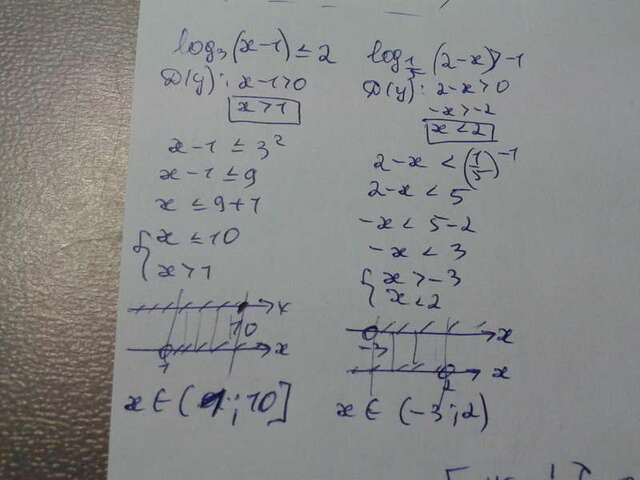 log₃(x-1) ≤ 2
D(y): x-1>0
x>1
x-1 ≤ 3²
x-1 ≤ 9
x ≤ 9+1
{ x ≤ 10
x>1
x
10
x
1
x ∈ (1; 10]
log_{1/5}(2-x)>-1
D(y): 2-x>0
-x>-2
x<2
2-x < (1/5)⁻¹
2-x < 5
-x < 5-2
-x < 3
{ x > -3
x < 2
x
-3
x
2
x ∈ (-3; 2)